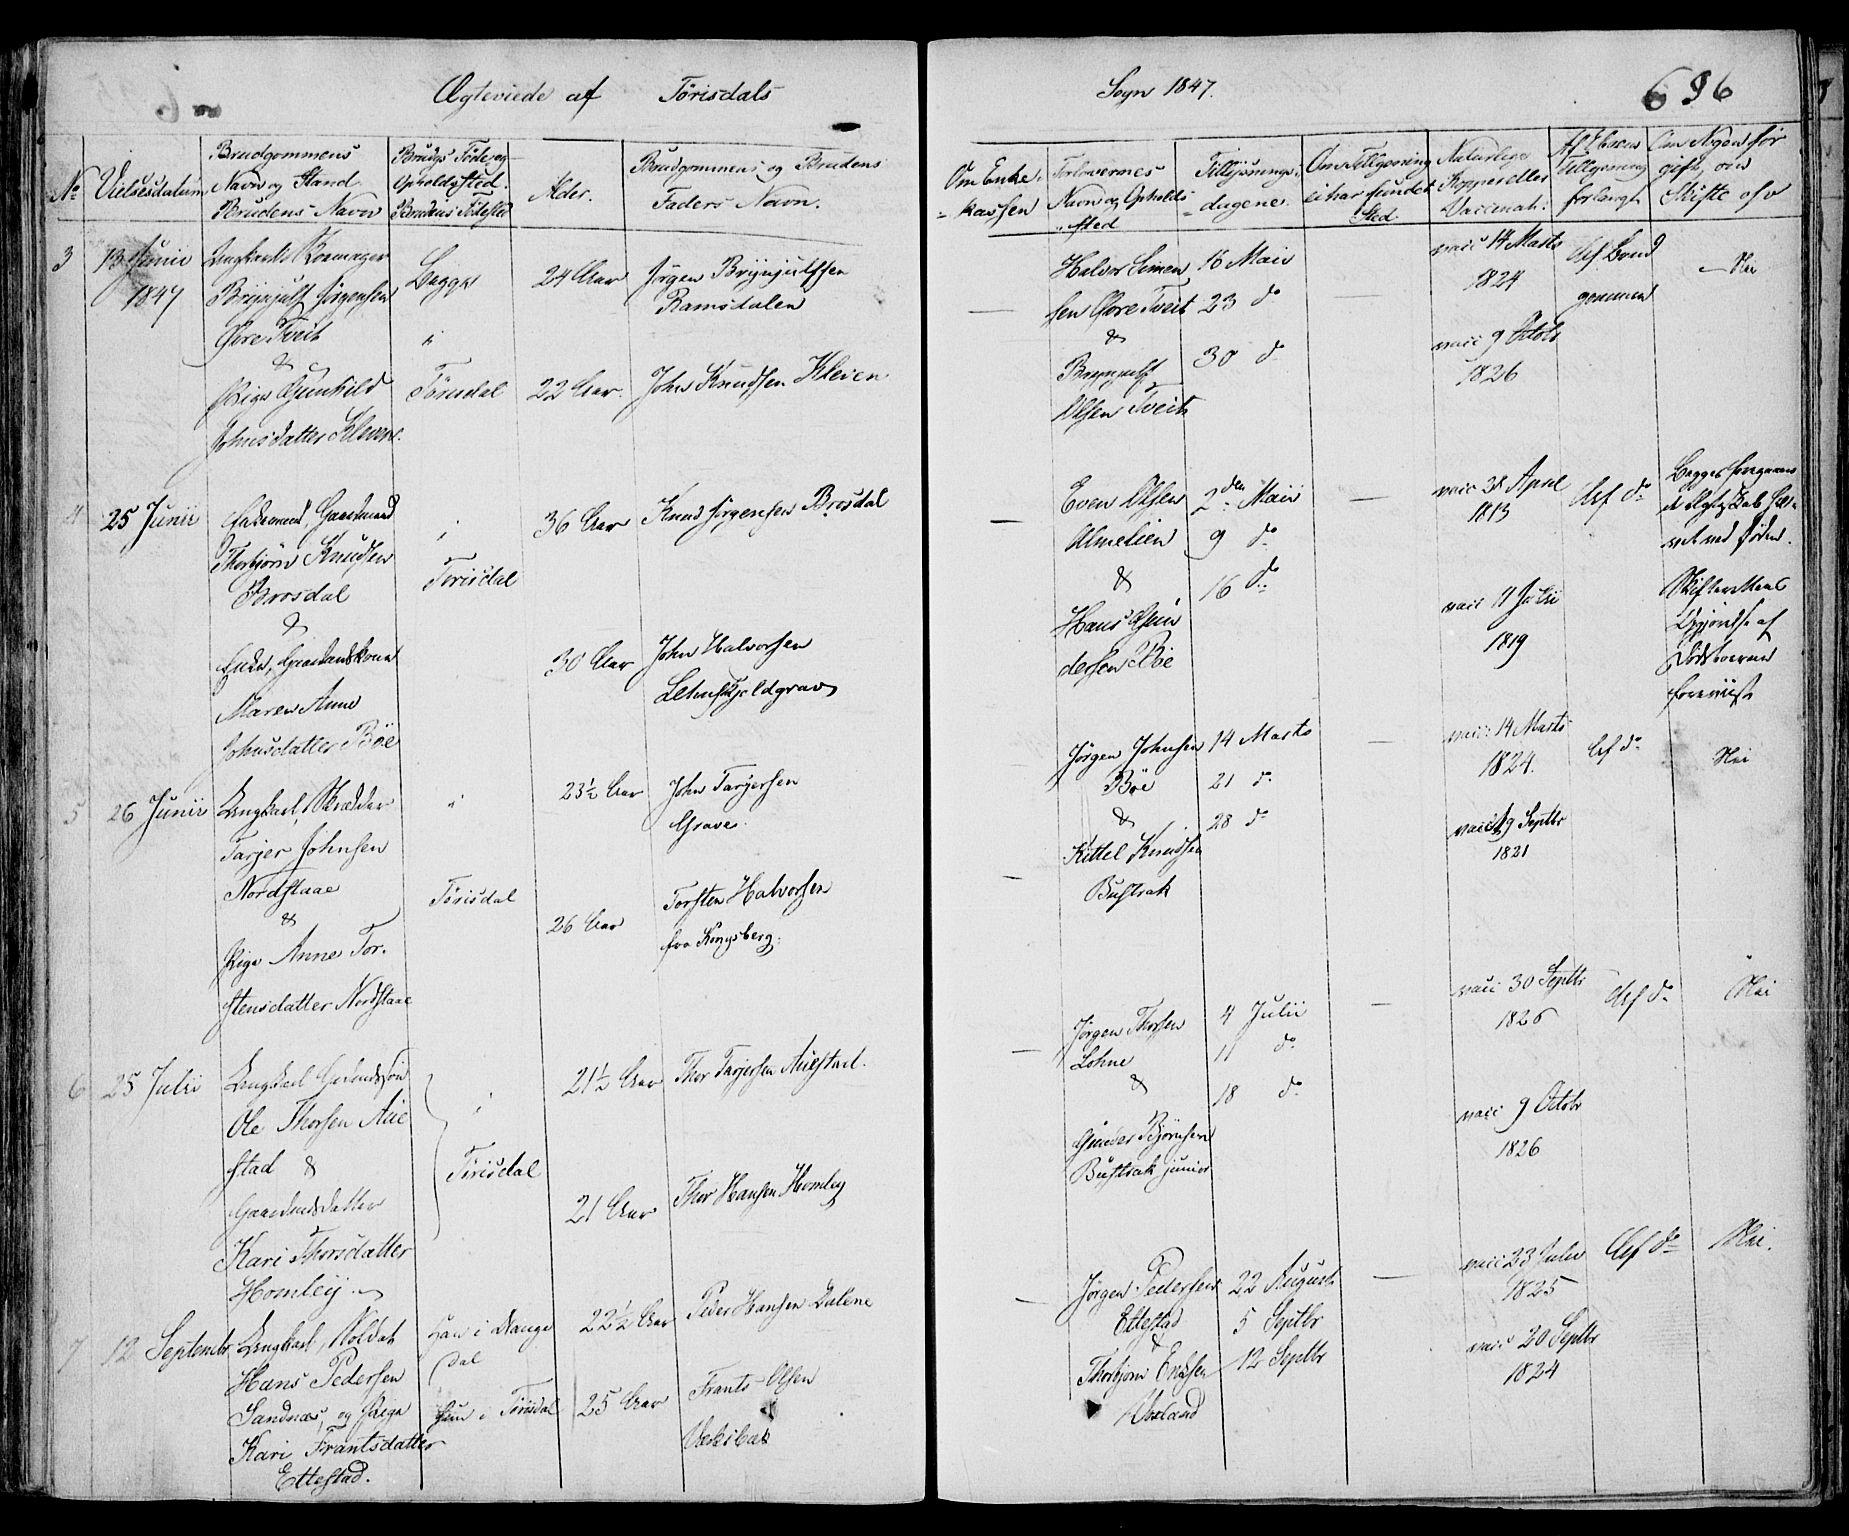 Ægteviede af Törisdals
Sogn 1847.
636
No
Vielsesdatum
Brudgommens
Navn og Stand
Brudens Navn
Brudgs Föde og
Opholdssted.
Brudens Födested
Alder.
Brudgommens og Brudens
Faders Navn.
Om Enke-
kassen
Forlovernes
Navn og Opholds
sted
Tillysnings-
dagene.
Om Tillysning
ei har fundet
Sted
Naturlige
Kopper eller
Vaccinat:
Af
Tillysning
forlangt
Om Nogen før
gift, om
Skifte osv
3
13 Junii
1847
Ungkarl
Brynjulf Jørgensen
Øvre Tveit
&
Pige Gunhild
Johnsdatter Kleven.
Begge
"
Törisdal
24 Aar
22 Aar.
Jørgen Brynjulfsen
Ramsdalen
John Knudsen Kleven
Halvor Simen
sen Øvre Tveit
&
Brynjulf
Olsen Tveit
16 Maii
23 do
30 do
vacc 14 Marts
1824
vacc 9 Octobr
1826
Af Brud
gommen
Nei
4
25 Junii
Enkemand, Gaardmand
Thorbjörn Knudsen
Brosdal
&
Enke, Gaardmandskone
Maren Anne
Johnsdatter Böe
"
Torisdal
36 Aar
30 Aar
Knud Jørgensen Brosdal
John Halvorsen
Even Olsen
Almelien
&
Hans Gun
dersen Böe
2den Maii
9 do
16 do
vacc 31 April
1813
vacc 11 Julii
1819
Af do
Begges foregaaen
de Ægteskab hæ-
vet ved Døden.
af
foreviist
5
26 Junii
Ungkarl, Skrædder
Tarjer Johnsen
Nordstaae
&
Pige Anne Tor-
stensdatter Nordstaae
"
Törisdal
23½ Aar
26 Aar
John Tarjersen
Grave.
Torsten Halvorsen
fra Kongsberg.
Jørgen Johnsen
Böe
&
Kittel Knudsen
Bustrak
14 Marts
21 do
28 do
vacc: 14 Marts
1824.
vacc 19 Septbr
1821
Af do
Nei
6
25 Julii
Ungkarl Gaardmandssøn
Ole Thorsen Aue
stad &
Gaardmandsdatter
Kari Thorsdatter
Homley.
"
Törisdal
21½ Aar
21 Aar
Thor Tarjersen Auestad.
Thor Hansen Homley
Jørgen Thorsen
Lohne
&
Gunder Björnsen
Bustrak junior
4 Julii
11 do
18 do
vacc 30 Septbr
1826
vacc 9 Octobr
1826
Af do
Nei
7
12 Septembr
Ungkarl, Soldat
Hans Pedersen
Sandnæs, og Pige
Kari Frantsdatter
Ettestad.
Han i Drange
dal
hun i Törisdal
22½ Aar
25 Aar
Peder Hansen Dalene
Frants Olsen
Jørgen Pedersen
Ettestad
&
Thorbjörn
22 August
5 Septbr
12 Septbr
vacc 23 Julii
1825
vacc 20 Septbr
1824
Af do
Nei.